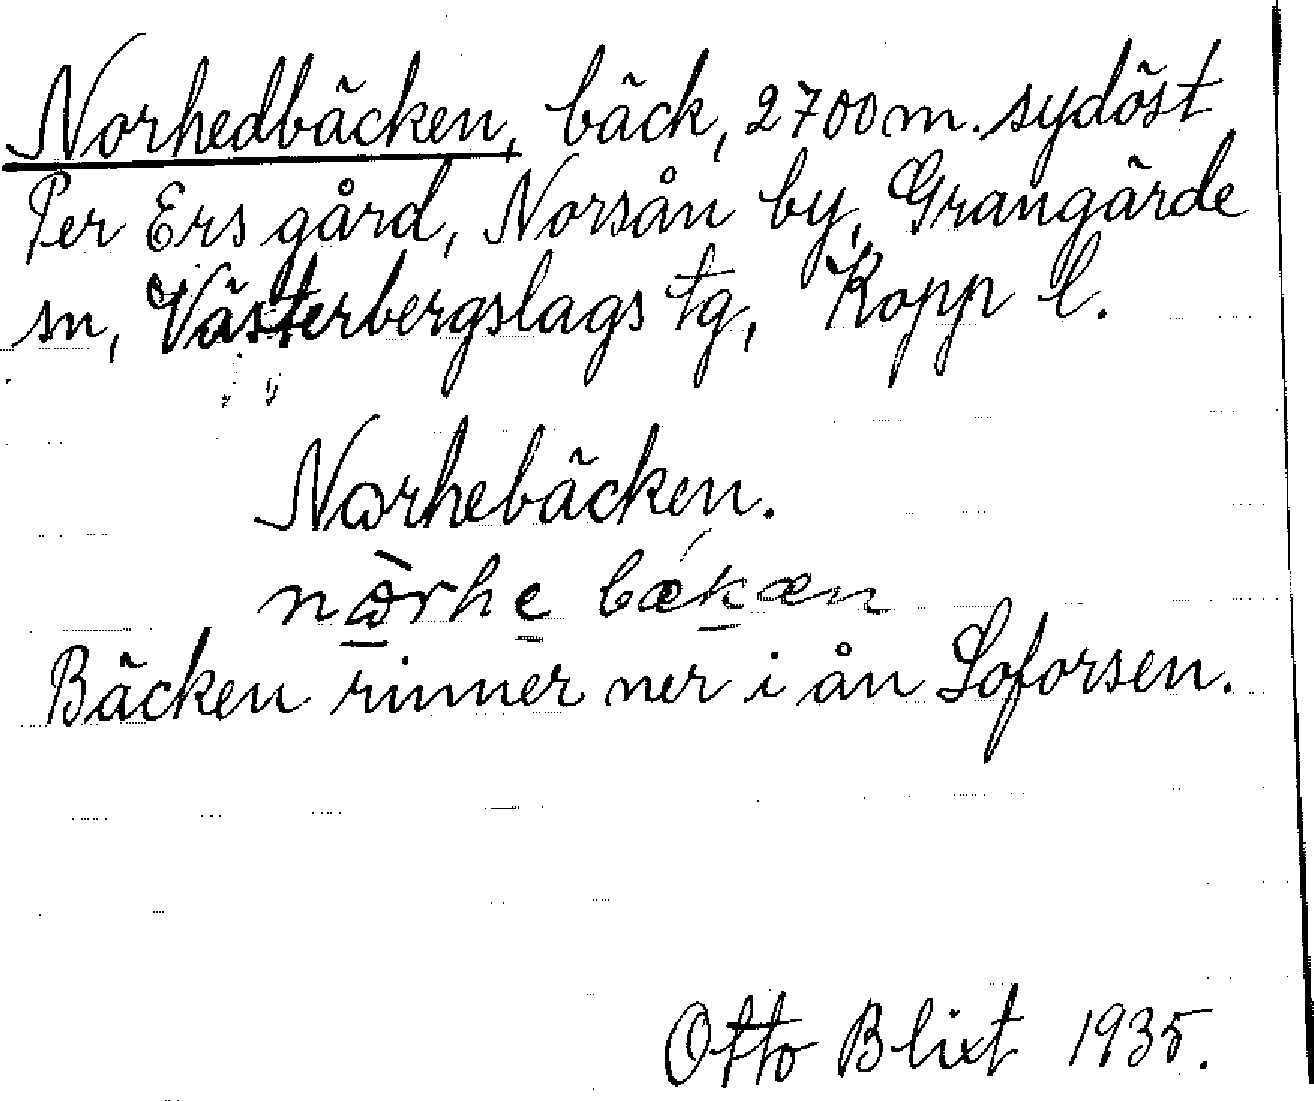 Norhedbäcken, bäck, 2700 m. sydöst
Per Ers gård, Norsån by, Grangärde
sn, Västerbergslags tg, Kopp l.
Norhebäcken.
nɷ̀rhe bækæn
Bäcken rinner ner i ån Loforsen.
Otto Blixt 1935.